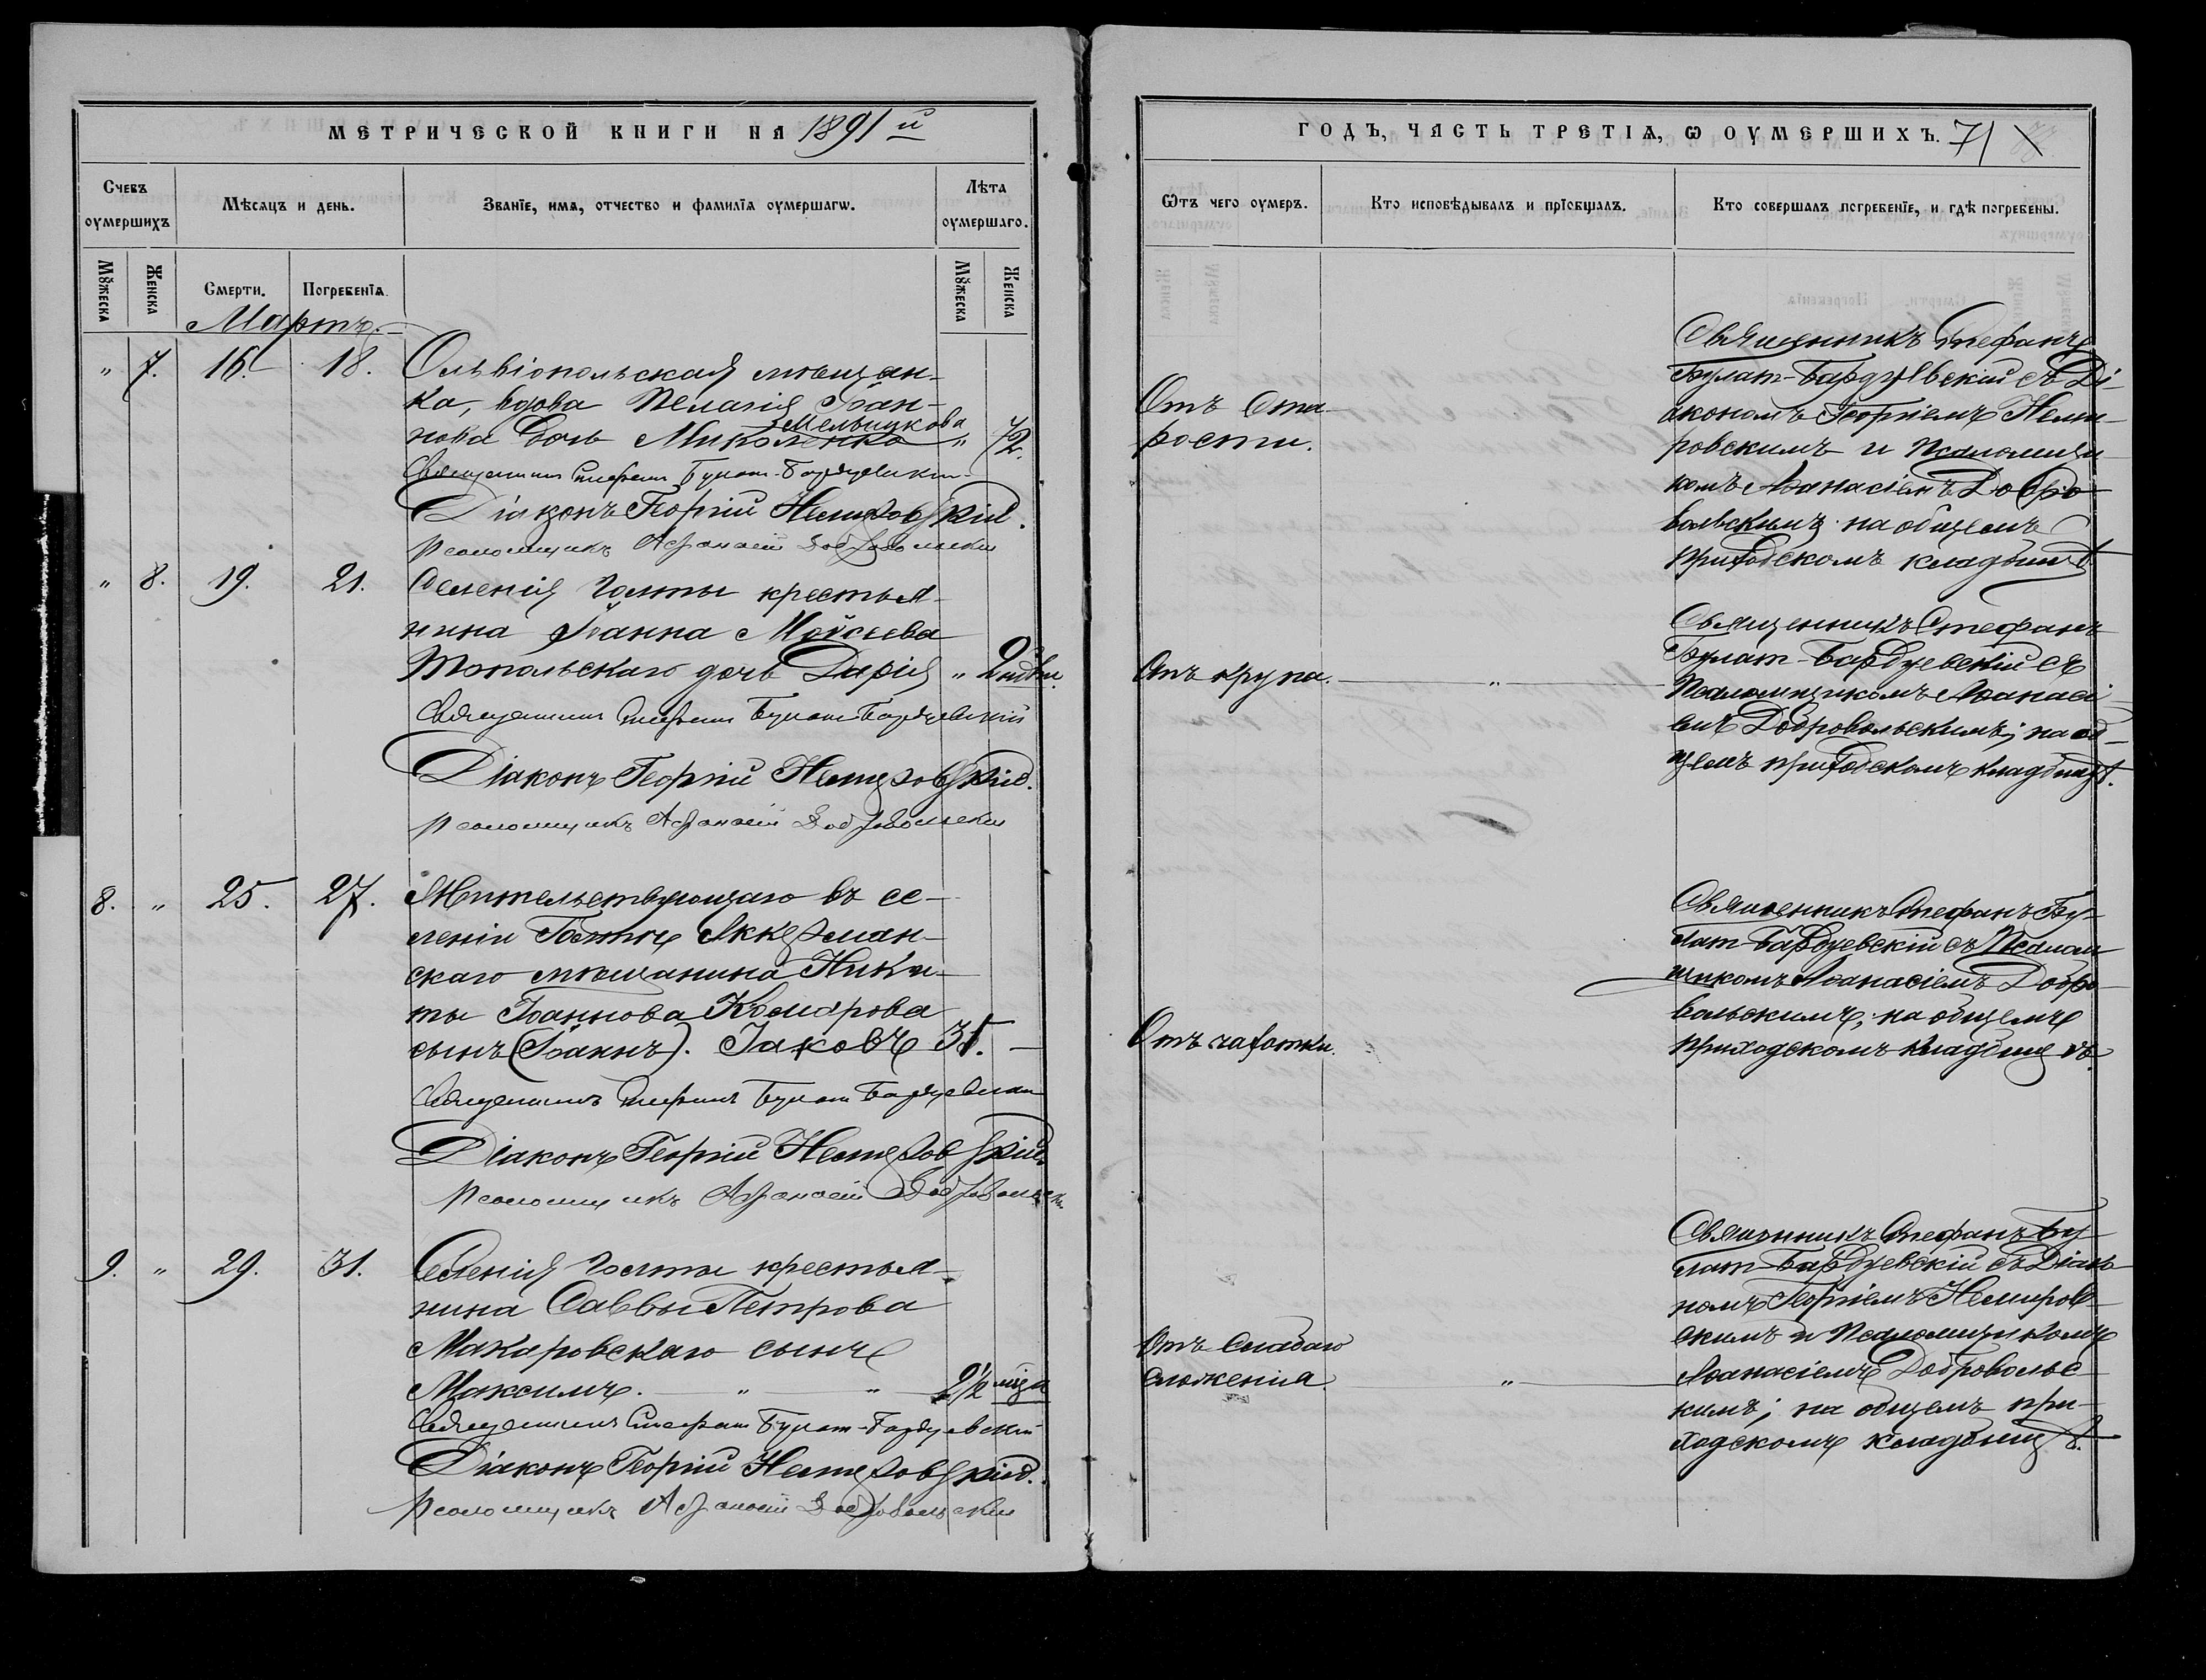 МЕТРИЧЕСКОЙ КНИГИ НА 1891 й
Счевъ оумершихъ
Мѣсяцъ и день.
Званїе, имѧ, отчество и фамилїа оумершагѡ.
Лѣта оумершаго.
Мꙋжеска
Женска
Смерти.
Погребенїѧ.
Мꙋжеска
Женска
Мартъ.
" 7. 16. 18. Ольвіопольская мѣщан-
ка, вдова Пелагія Іоан-
Мельникова
нова дочь Миколенко " 72.
Священникъ Стефанъ Булат-Бардуевскій
Діаконъ Георгій Немировскій.
Псаломщикъ Афанасій Добровольскій
" 8. 19. 21. Селенія Голты крестья-
нина Іоанна Мойсеева
Топольскаго дочь Дарія " 2 недѣли.
Священникъ Стефанъ Булат-Бардуевскій
Діаконъ Георгій Немировскій.
Псаломщикъ Афанасій Добровольскій
8. " 25. 27. Жительствующаго въ се-
леніи Голтѣ Аккерман-
скаго мѣщанина Ники-
ты Іоаннова Комарова
сынъ (Іоаннъ). Іаковъ 31. —
Священникъ Стефанъ Булат-Бардуевскій
Діаконъ Георгій Немировскій
Псаломщикъ Афанасій Добровольскій
9. " 29. 31. Селенія Голты крестья-
нина Саввы Петрова
Макаровскаго сынъ
Максимъ. — " — " — 2½ мѣс.
Священникъ Стефанъ Булат-Бардуевскій
Діаконъ Георгій Немировскій.
Псаломщикъ Афанасій Добровольскій
ГОДЪ, ЧАСТЬ ТРЕТІѦ, Ѡ ОУМЕРШИХЪ. 71
Ѿтъ чего оумеръ.
Кто исповѣдывалъ и прїобщалъ.
Кто совершалъ погребенїе, и гдѣ погребены.
Отъ ста-
рости.
Священникъ Стефанъ
Булат-Бардуевскій съ Ді-
акономъ Георгіемъ Неми-
ровскимъ и Псаломщи-
комъ Аѳанасіемъ Добро-
вольскимъ на общемъ
приходскомъ кладбищѣ
Отъ крупа. — " —
Священникъ Стефанъ
Булат-Бардуевскій съ
Псаломщикомъ Аѳанасі-
емъ Добровольскимъ; на об-
щемъ приходскомъ кладбищѣ.
Отъ чахотки.
Священникъ Стефанъ Бу-
лат-Бардуевскій съ Псалом-
щикомъ Аѳанасіемъ Добро-
вольскимъ; на общемъ
приходскомъ кладбищѣ.
Отъ слабаго
сложенія. — " —
Священникъ Стефанъ Бу-
лат-Бардуевскій съ Діако-
номъ Георгіемъ Немиров-
скимъ и Псаломщикомъ
Аѳанасіемъ Добровольс-
кимъ; на общемъ при-
ходскомъ кладбищѣ.